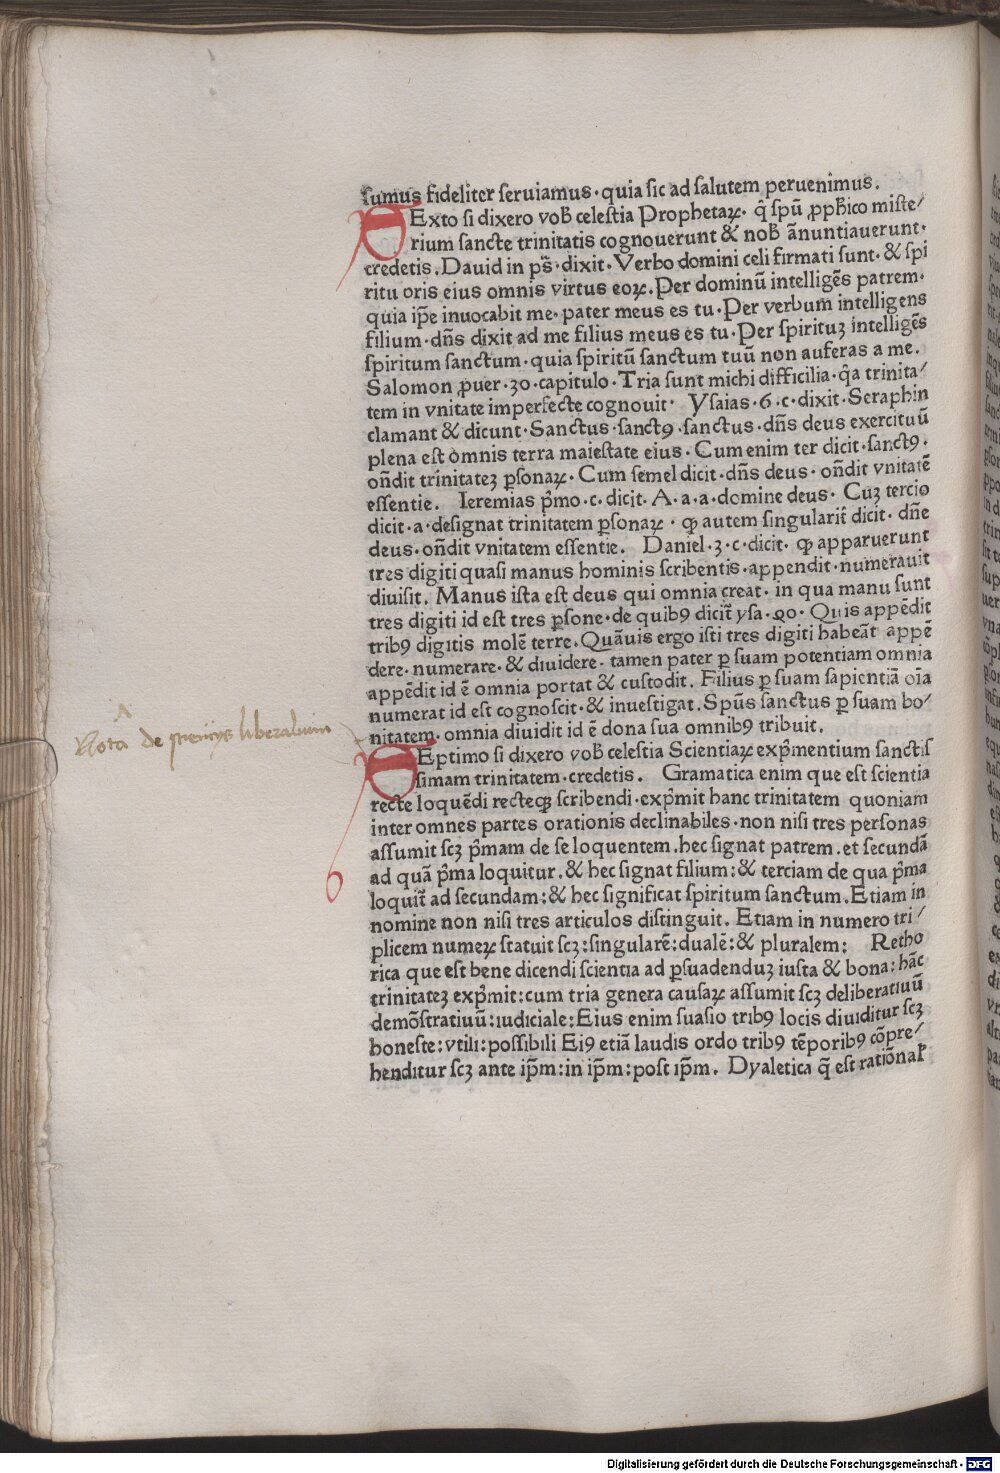 sumus fideliter seruiamus·quia sic ad salutem peruenimus.
SExto si dixero vob̄ celestia Prophetaꝝ· q̄ spū ꝓph̄ico miste/
rium sancte trinitatis cognouerunt & nob̄ ānuntiauerunt·
credetis. Dauid in ps̄·dixit·Verbo domini celi firmati sunt·& spi
ritu oris eius omnis virtus eoꝝ. Per dominū intelligēs patrem·
quia ip̄e inuocabit me·pater meus es tu·Per verbum intelligens
filium·dn̄s dixit ad me filius meus es tu·Per spirituꝫ intelligēs
spiritum sanctum·quia spiritū sanctum tuū non auferas a me.
Salomon ꝓuer·30·capitulo·Tria sunt michi difficilia·q̄a trinita/
tem in vnitate imperfecte cognouit· Ysaias·6·c·dixit·Seraphin
clamant & dicunt·Sanctus·sanctꝯ·sanctus·dn̄s deus exercituū
plena est omnis terra maiestate eius·Cum enim ter dicit·sanctꝯ·
on̄dit trinitateꝫ ꝑsonaꝝ·Cum semel dicit·dn̄s deus·on̄dit vnitatē
essentie. Ieremias p̄mo·c·dicit·A·a·a·domine deus· Cuꝫ tercio
dicit·a·designat trinitatem ꝑsonaꝝ·ꝙ autem singularit̄ dicit·dn̄e
deus·on̄dit vnitatem essentie. Daniel·3·c·dicit·ꝙ apparuerunt
tres digiti quasi manus hominis scribentis·appendit·numerauit
diuisit. Manus ista est deus qui omnia creat·in qua manu sunt
tres digiti id est tres ꝑsone·de quibꝯ dicit̄ ysa·40·Quis appēdit
tribꝯ digitis molē terre. Quāuis ergo isti tres digiti habeāt appē
dere·numerare·& diuidere·tamen pater ꝑ suam potentiam omnia
appēdit id ē omnia portat & custodit. Filius ꝑ suam sapientiā oīa
numerat id est cognoscit·& inuestigat. Spūs sanctus ꝑ suam bo/
nitatem·omnia diuidit id ē dona sua omnibꝯ tribuit.
Nota de scienciis liberalium
SEptimo si dixero vob̄ celestia Scientiaꝝ exp̄mentium sanctis
simam trinitatem·credetis. Gramatica enim que est scientia
recte loquēdi recteqꝫ scribendi·exp̄mit hanc trinitatem quoniam
inter omnes partes orationis declinabiles·non nisi tres personas
assumit scꝫ p̄mam de se loquentem.hec signat patrem.et secundā
ad quā p̄ma loquitur.& hec signat filium:& terciam de qua p̄ma
loquit̄ ad secundam:& hec significat spiritum sanctum. Etiam in
nomine non nisi tres articulos distinguit. Etiam in numero tri/
plicem numeꝝ statuit scꝫ:singularē:dualē:& pluralem: Retho
rica que est bene dicendi scientia ad ꝑsuadenduꝫ iusta & bona:hāc
trinitateꝫ exp̄mit:cum tria genera causaꝝ assumit scꝫ deliberatiuū
demōstratiuū:iudiciale:Eius enim suasio tribꝯ locis diuiditur scꝫ
honeste:vtili:possibili Eiꝯ etiā laudis ordo tribꝯ tēporibꝯ cōpre/
henditur scꝫ ante ip̄m:in ip̄m:post ip̄m. Dyaletica q̄ est ratiōnal̄
Digitalisierung gefördert durch die Deutsche Forschungsgemeinschaft - DFG